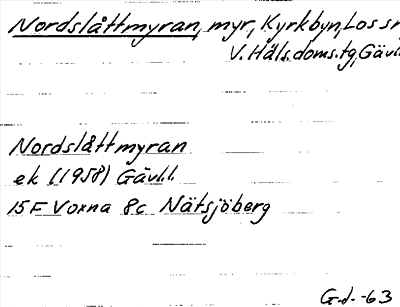 Nordslåttmyran, myr, Kyrkbyn, Los sn
V. Häls. doms.tg, Gävl.
Nordslåttmyran
ek (1958) Gävl.l.
15F Voxna 8c Nätsjöberg
G.d.-63